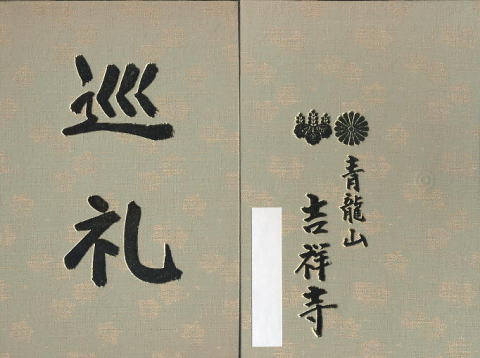 巡礼
青龍山
吉祥寺